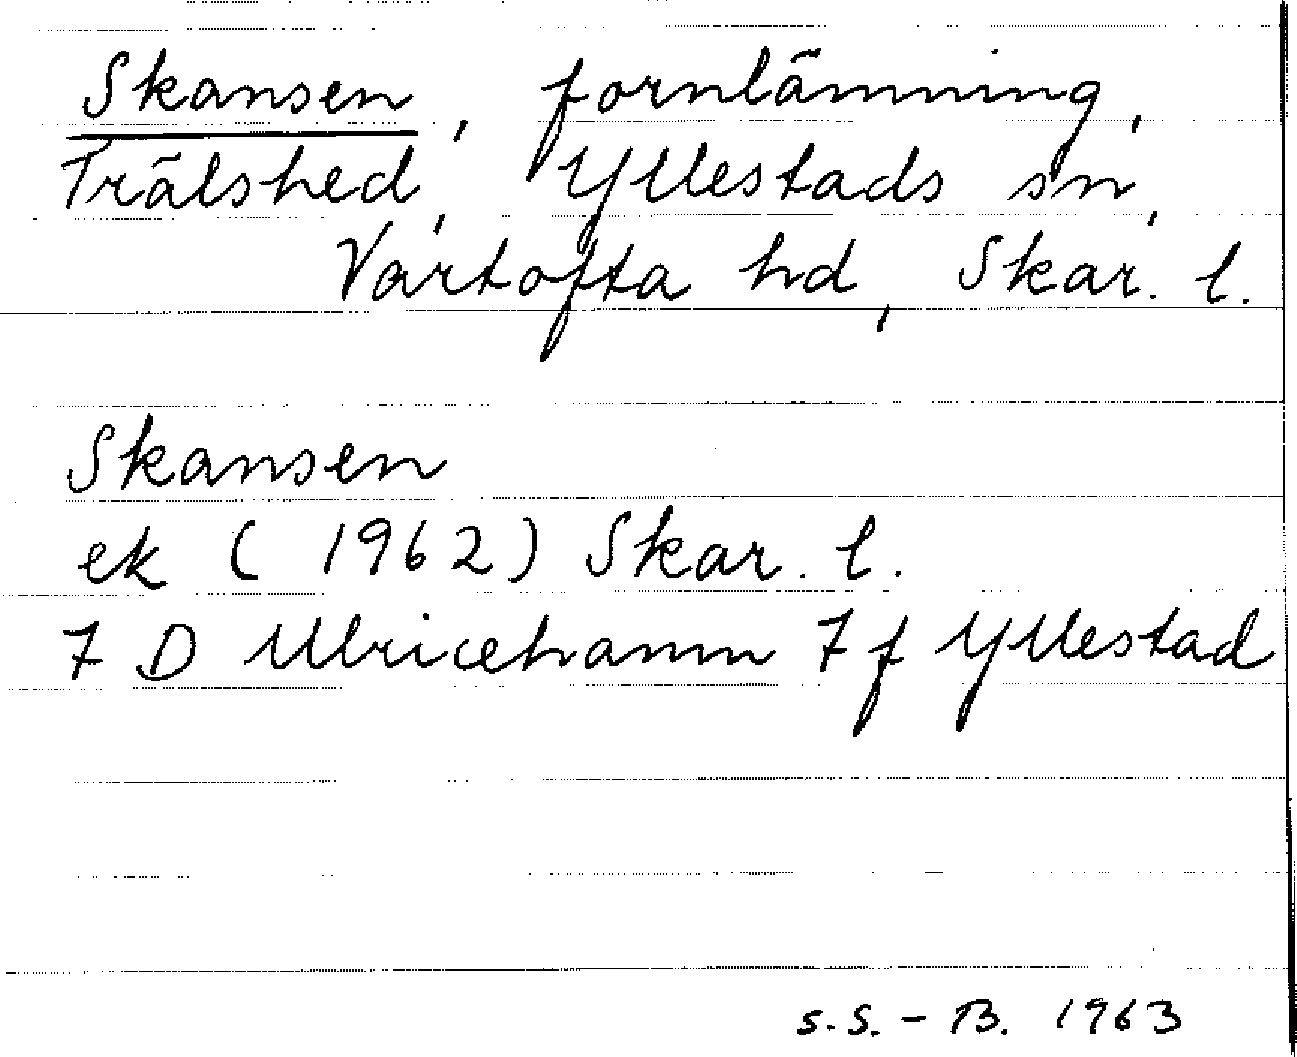 Skansen, fornlämning,
Trälshed, Yllestads sn,
Vartofta hd, Skar. l.
Skansen
ek (1962) Skar. l.
7 D Ulricehamn 7 f Yllestad
S.S. - B. 1963